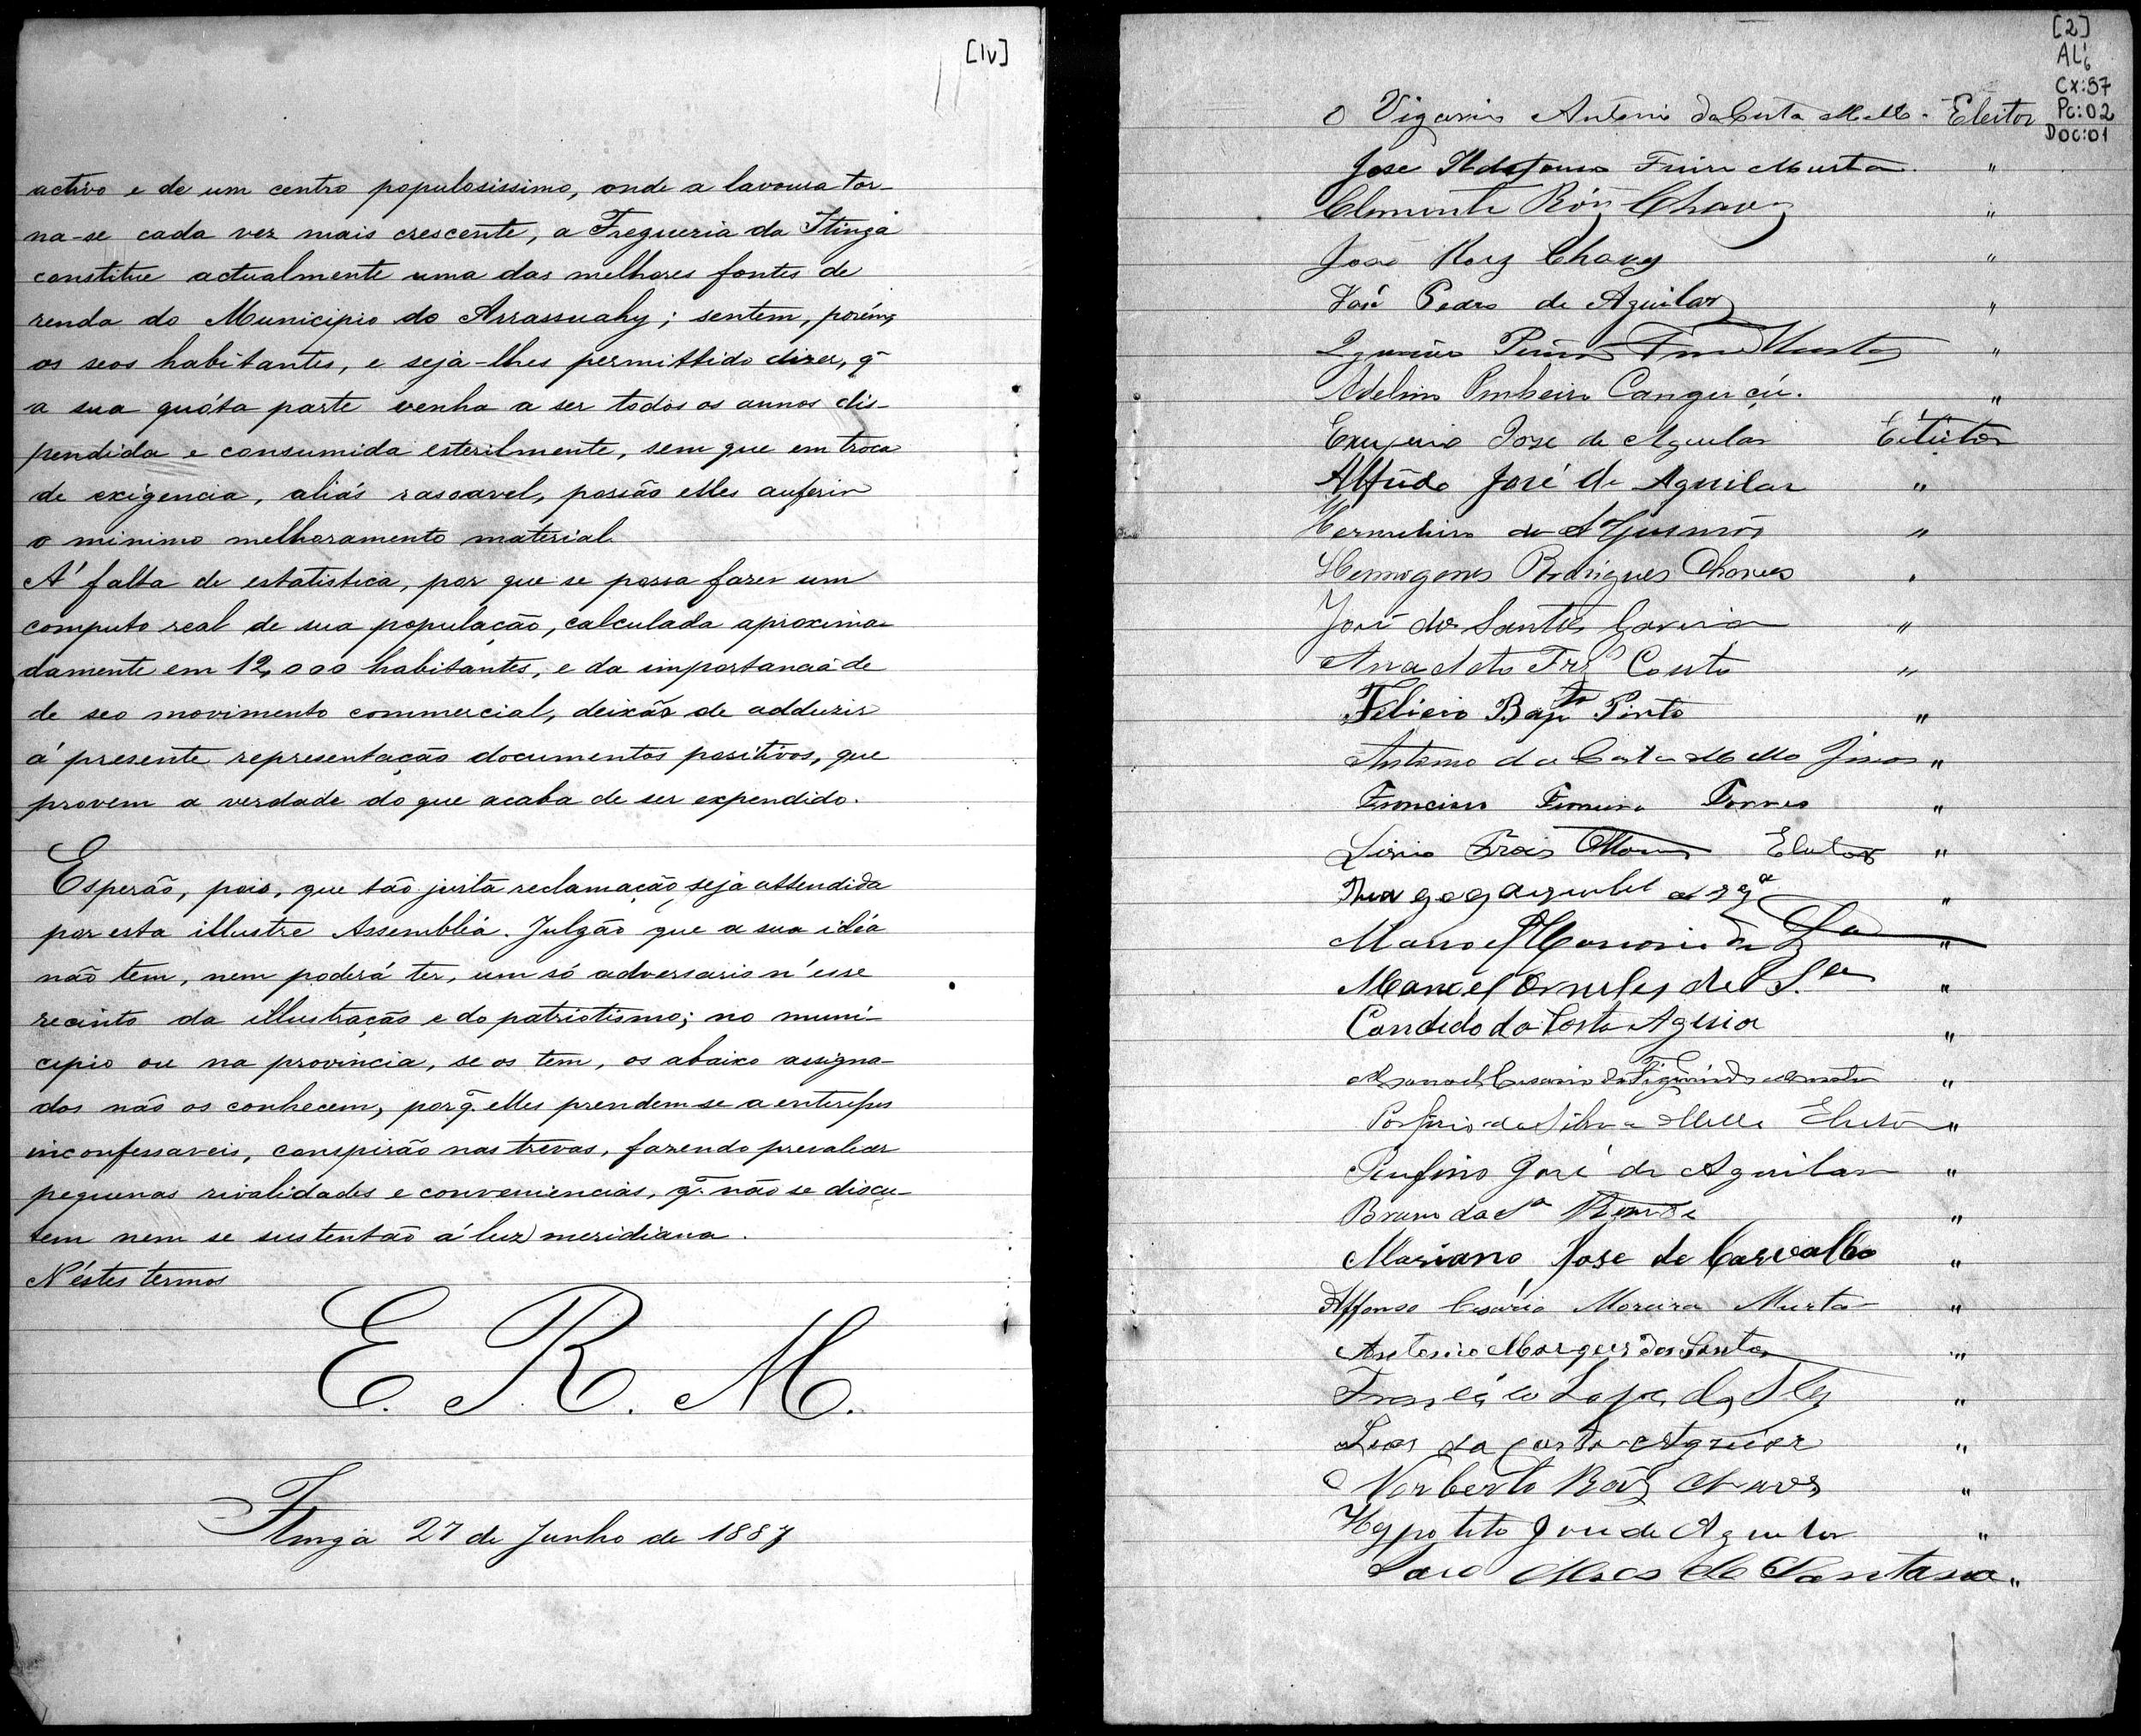 [1v]
activo e de um centro populosissimo, onde a lavoura tor-
na-se cada vez mais crescente, a Freguezia da Itinga
constitue actualmente uma das melhores fontes de
renda do Municipio do Arrassuahy; sentem, porém,
os seos habitantes, e seja-lhes permittido dizer, q̃
a sua quóta parte venha a ser todos os annos dis-
pendida e consumida esterilmente, sem que em troca
de exigencia, aliás rasoavel, possão elles auferir
o minimo melhoramento material.
A' falta de estatistica, por que se possa fazer um
computo real de sua população, calculada aproxima-
damente em 12,000 habitantes, e da importancia de
de seo movimento commercial, deixão de adduzir
á presente representação documentos positivos, que
provem a verdade do que acaba de ser expendido.
Esperão, pois, que tão justa reclamação seja attendida
por esta illustre Assembléa. Julgão que a sua idéa
não tem, nem poderá ter, um só adversario n'esse
recinto da illustração e do patriotismo; no muni-
cipio ou na provincia, se os tem, os abaixo assigna-
dos não os conhecem, porq̃. elles prendem-se a enteresses
inconfessaveis, conspirão nas trevas, fazendo prevalecer
pequenas rivalidades e conveniencias, q̃. não se discu-
tem nem se sustentão á luz meridiana.
N'éstes termos
E. R. M.
Itinga 27 de Junho de 1887
[2]
AL¹6
Cx:57
Pc:02
Doc:01
O Vigario Antonio da Costa Mello. Eleitor
José Ildefonso Freire Murta. "
Clemente Roiz Chaves "
José Roiz Chaves "
José Pedro de Aguilar "
Murta "
Adelino Pinheiro Cangussú. "
José de Aguilar Eleitor
Alfredo José de Aguilar "
de Gusmão "
Hermogenes Rodrigues Chaves "
José dos Santos "
Anacleto Couto "
Felicio Bapta Pinto "
Antonio da Costa Mello Junior "
Francisco Ferreira Torres "
Eleitor "
"
Manoel "
Manoel Ornellas de Sa "
Candido da Costa "
Manoel Cesario de Figueiredo "
Porfirio da Silva Mello Eleitor "
Rufino José de Aguilar "
Bruno da Sa "
Mariano José de Carvalho "
Affonso Cesário Moreira Murta "
Antonio Marques dos Santos "
Francisco Lopes da Sa "
da Costa Aguiar "
Norberto Roiz Chaves "
Hyppolito José de Aguilar "
de Santana "